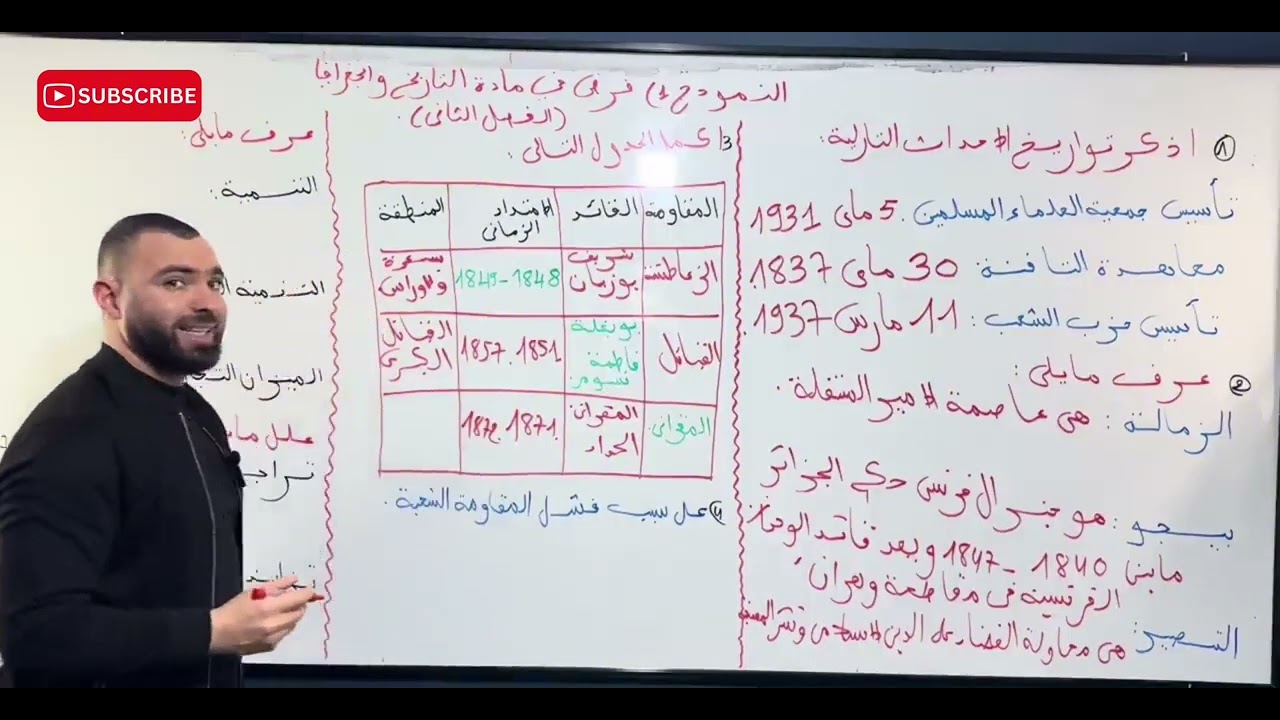 SUBSCRIBE
النموذج 1) فرض في مادة التاريخ والجغرافيا
(الفصل الثاني).
① اذكر تواريخ الأحداث التالية:
تأسيس جمعية العلماء المسلمين. 5 ماي 1931
معاهدة التافنة: 30 ماي 1837.
تأسيس حزب الشعب: 11 مارس 1937.
② عرف مايلي:
الزمالة: هي عاصمة الأمير المتنقلة.
بيجو: هو جنرال فرنسي حكم الجزائر
مابين 1840 - 1847 وبعد قائد
الفرنسية في مقاطعة وهران
التنصير: هي محاولة القضاء على الدين الاسلامي ونشر
3/ كمل الجدول التالي:
المقاومة القائد الامتداد الزماني المنطقة
الزعاطشة شريف بوزيان 1848-1849 بسكرة والاوراس
القبائل بوبغلة فاطمة نسومر 1851. 1857 القبائل الكبرى
المقراني. المقراني الحداد 1871. 1872
4) علل سبب فشل المقاومة الشعبية.
عرف مايلي:
التنمية:
التنمية
الميزان
علل